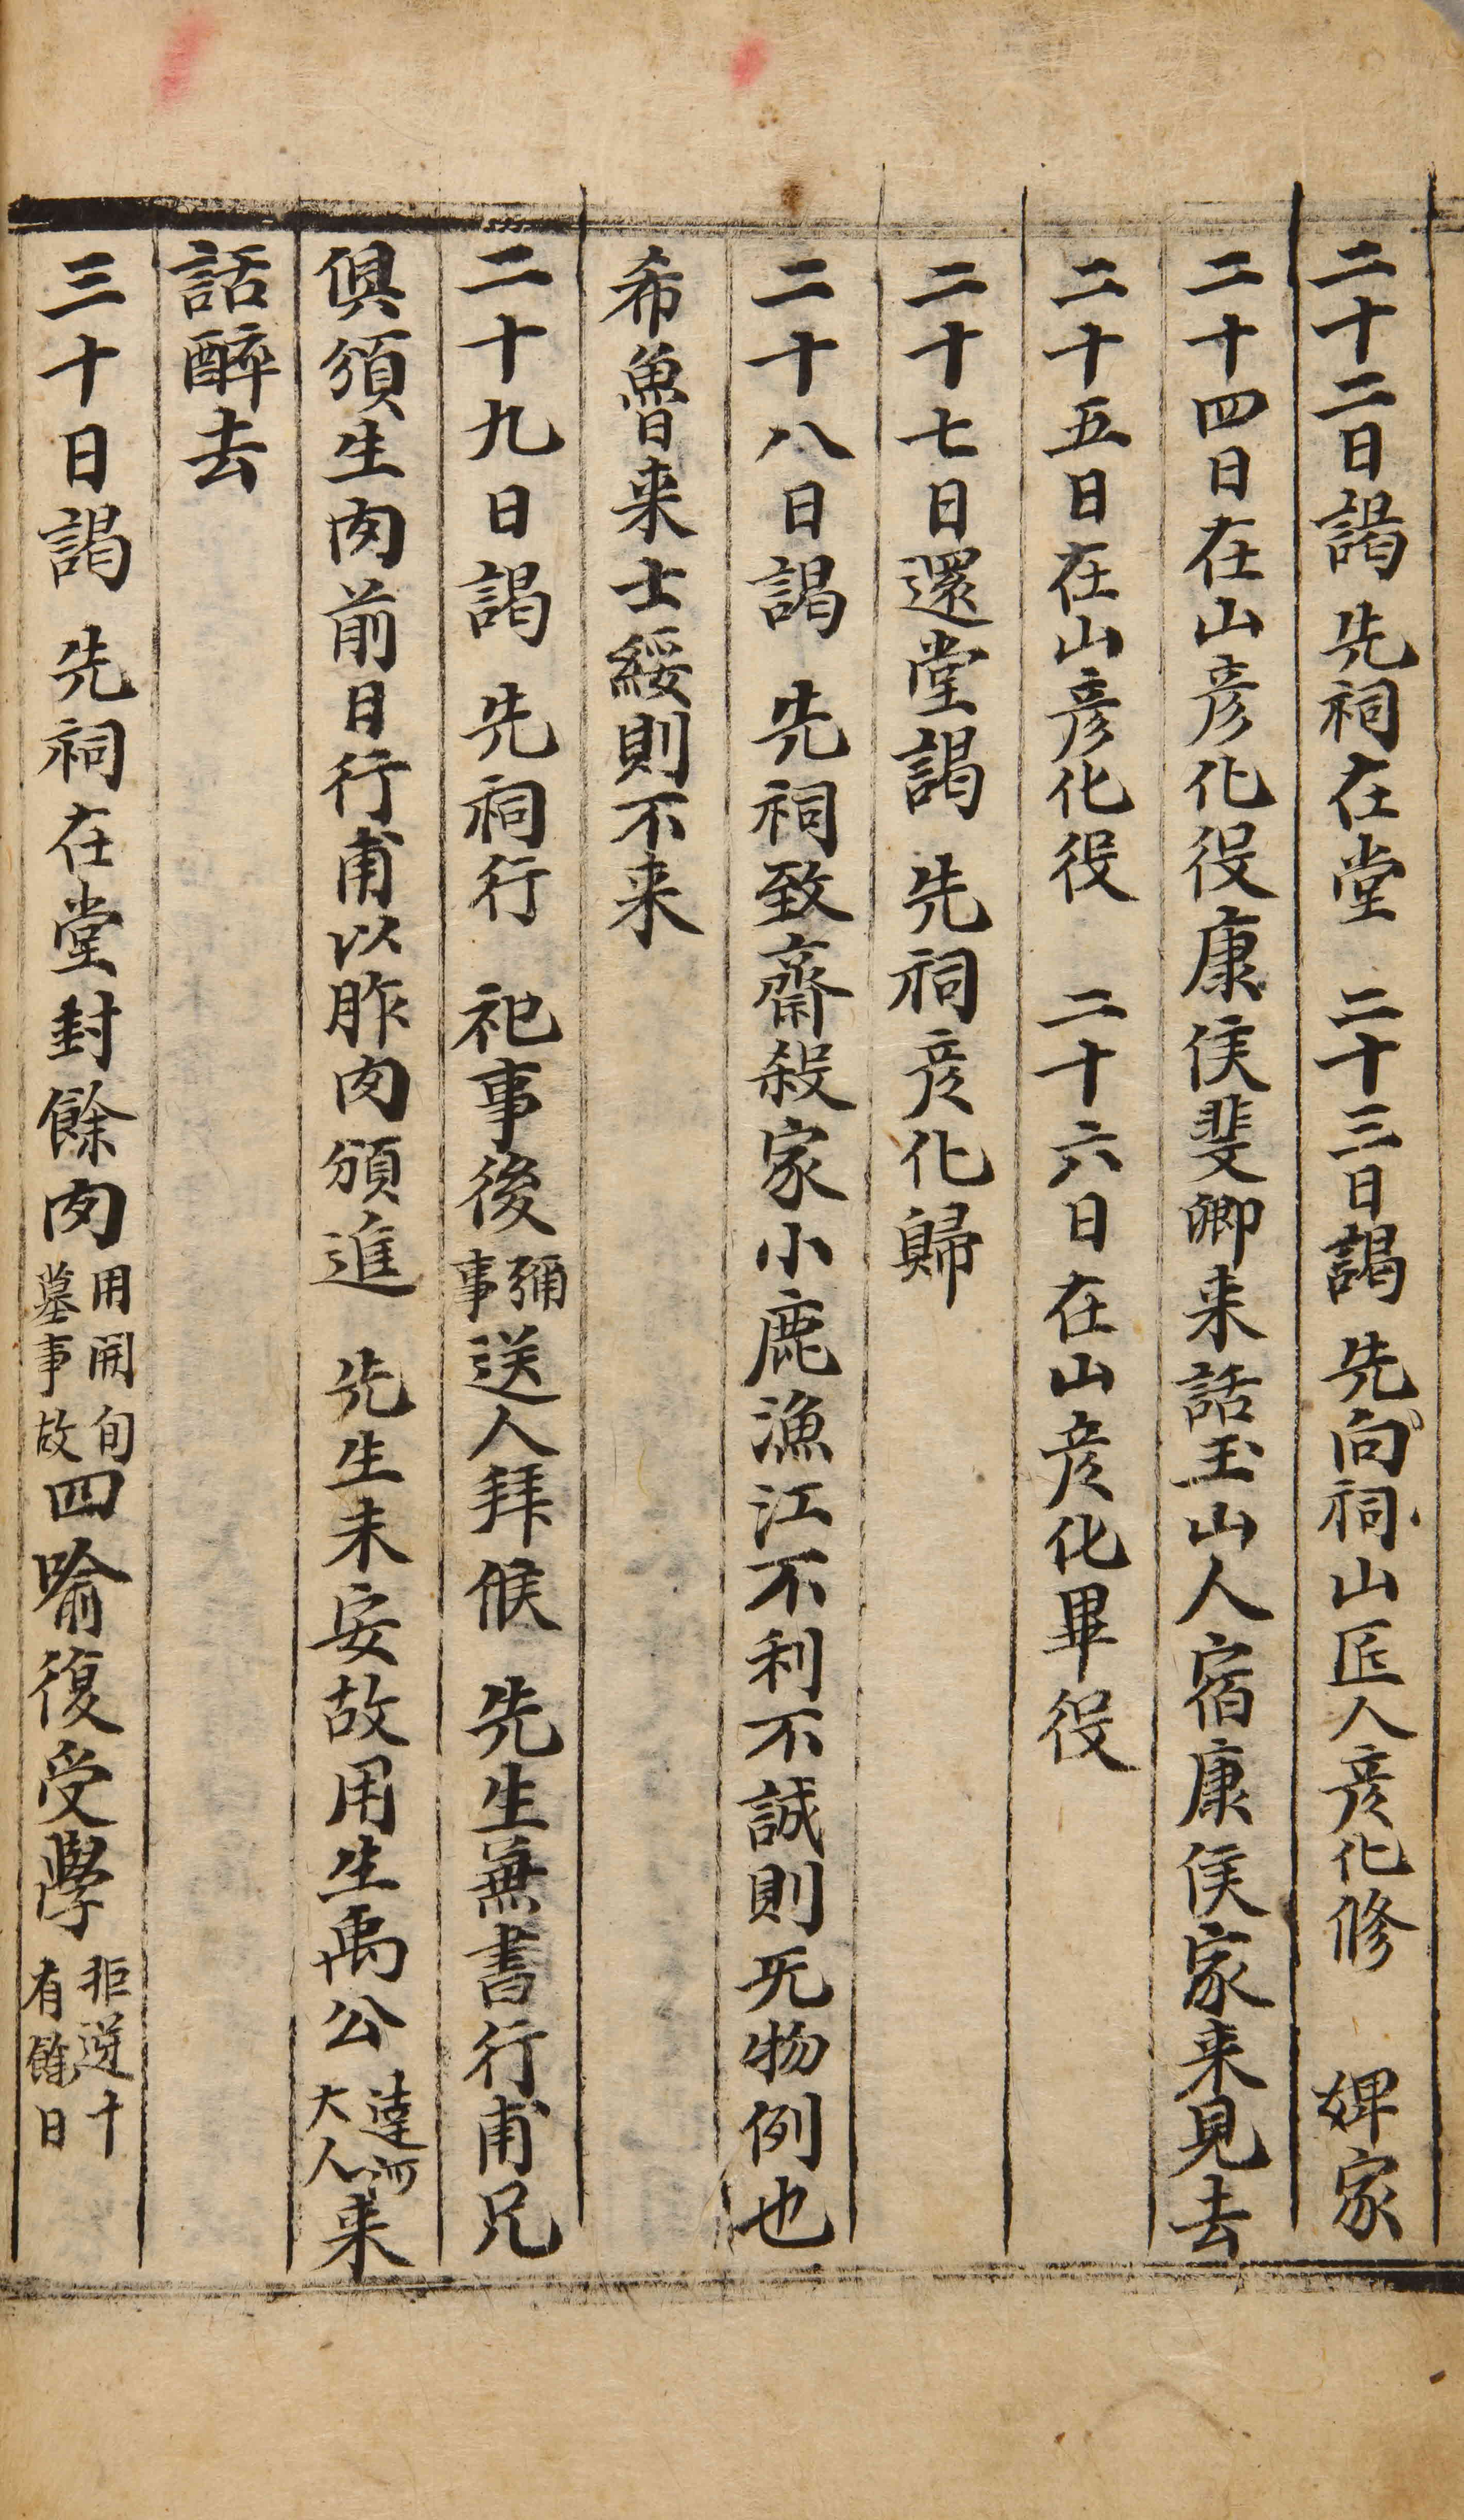 二十二日謁 先祠在堂 二十三日謁 先向祠山匠人彦化修 婢家
二十四日在山彦化役康侯斐卿来話玉山人宿康侯家来見去
二十五日在山彦化役 二十六日在山彦化畢役
二十七日還堂謁 先祠彦化歸
二十八日謁 先祠致齋殺家小鹿漁江不利不誠則旡物例也
希魯来士綏則不来
二十九日謁 先祠行 祀事後彌事送人拜候 先生兼書行甫兄
俱須生肉前日行甫以胙肉頒進 先生未安故用生禹公達河大人来
話醉去
三十日謁 先祠在堂封餘肉用開旬墓事故四喻復受學非逆十有餘日